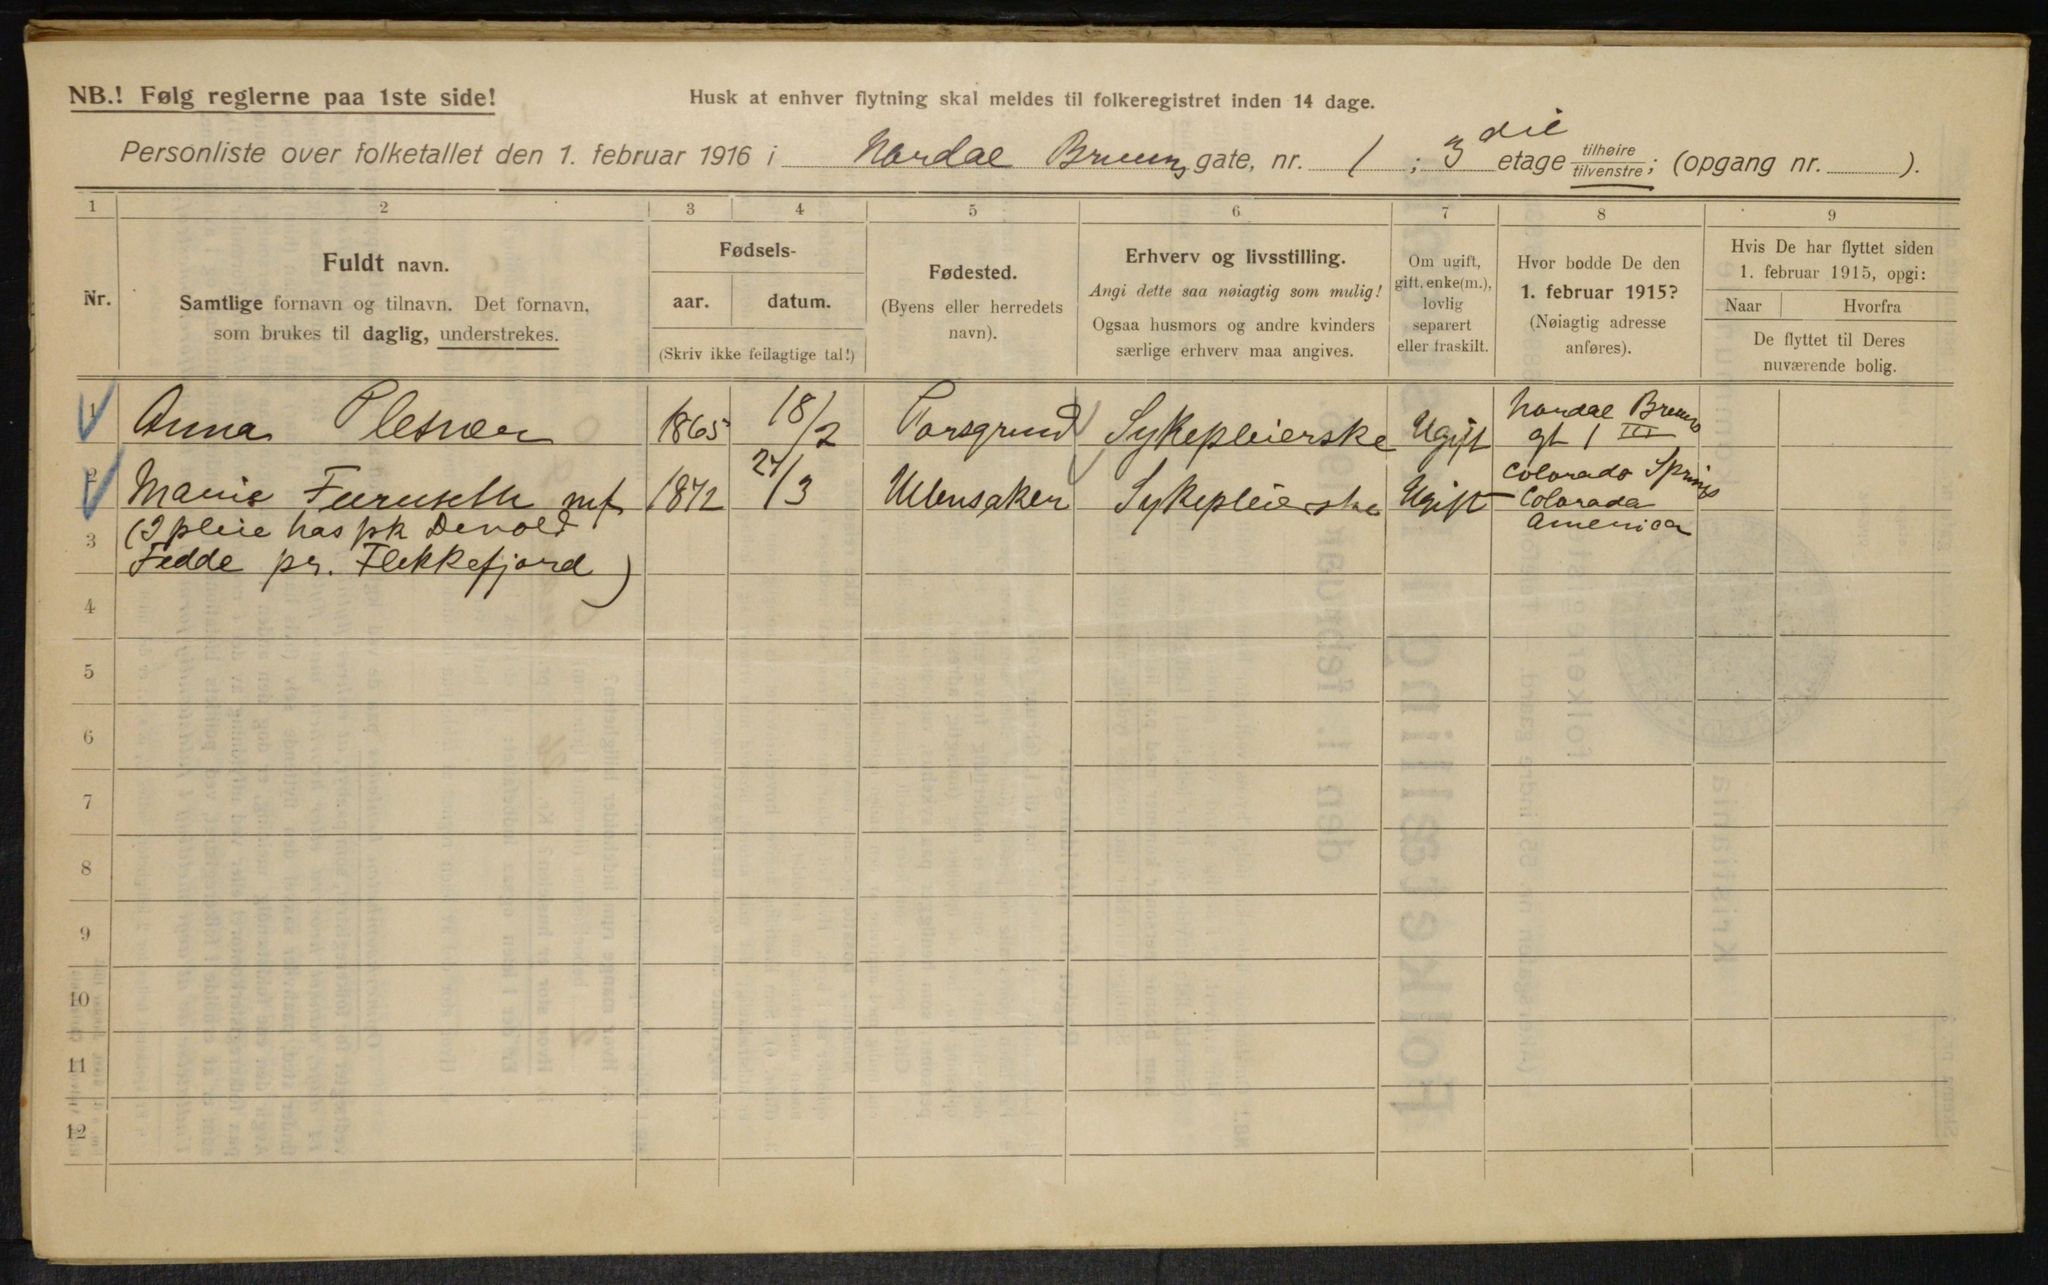 NB.! Følg reglerne paa 1ste side!
Husk at enhver flytning skal meldes til folkeregistret inden 14 dage.
Personliste over folketallet den 1. februar 1916 i Nordal Bruuns gate, nr. 1 ; 3die etage tilhøire tilvenstre ; (opgang nr. ).
1 2 3 4 5 6 7 8 9
Nr.
Fuldt navn.
Samtlige fornavn og tilnavn. Det fornavn,
som brukes til daglig, understrekes.
Fødsels-
aar. datum.
(Skriv ikke feilagtige tal!)
Fødested.
(Byens eller herredets
navn).
Erhverv og livsstilling.
Angi dette saa nøiagtig som mulig!
Ogsaa husmors og andre kvinders
særlige erhverv maa angives.
Om ugift,
gift, enke(m.),
lovlig
separert
eller fraskilt.
Hvor bodde De den
1. februar 1915?
(Nøiagtig adresse
anføres).
Hvis De har flyttet siden
1. februar 1915, opgi:
Naar Hvorfra
De flyttet til Deres
nuværende bolig.
1 Anna Plesner 1865 18/2 Porsgrund Sykepleierske Ugift Nordal Bruuns
gt 1 III
2 Marie Furuseth mf 1872 27/3 Ullensaker Sykepleierske Ugift Colorado Springs
Colorado
America
(I pleie hos Devold
3 Fedde pr. Flekkefjord)
4
5
6
7
8
9
10
11
12